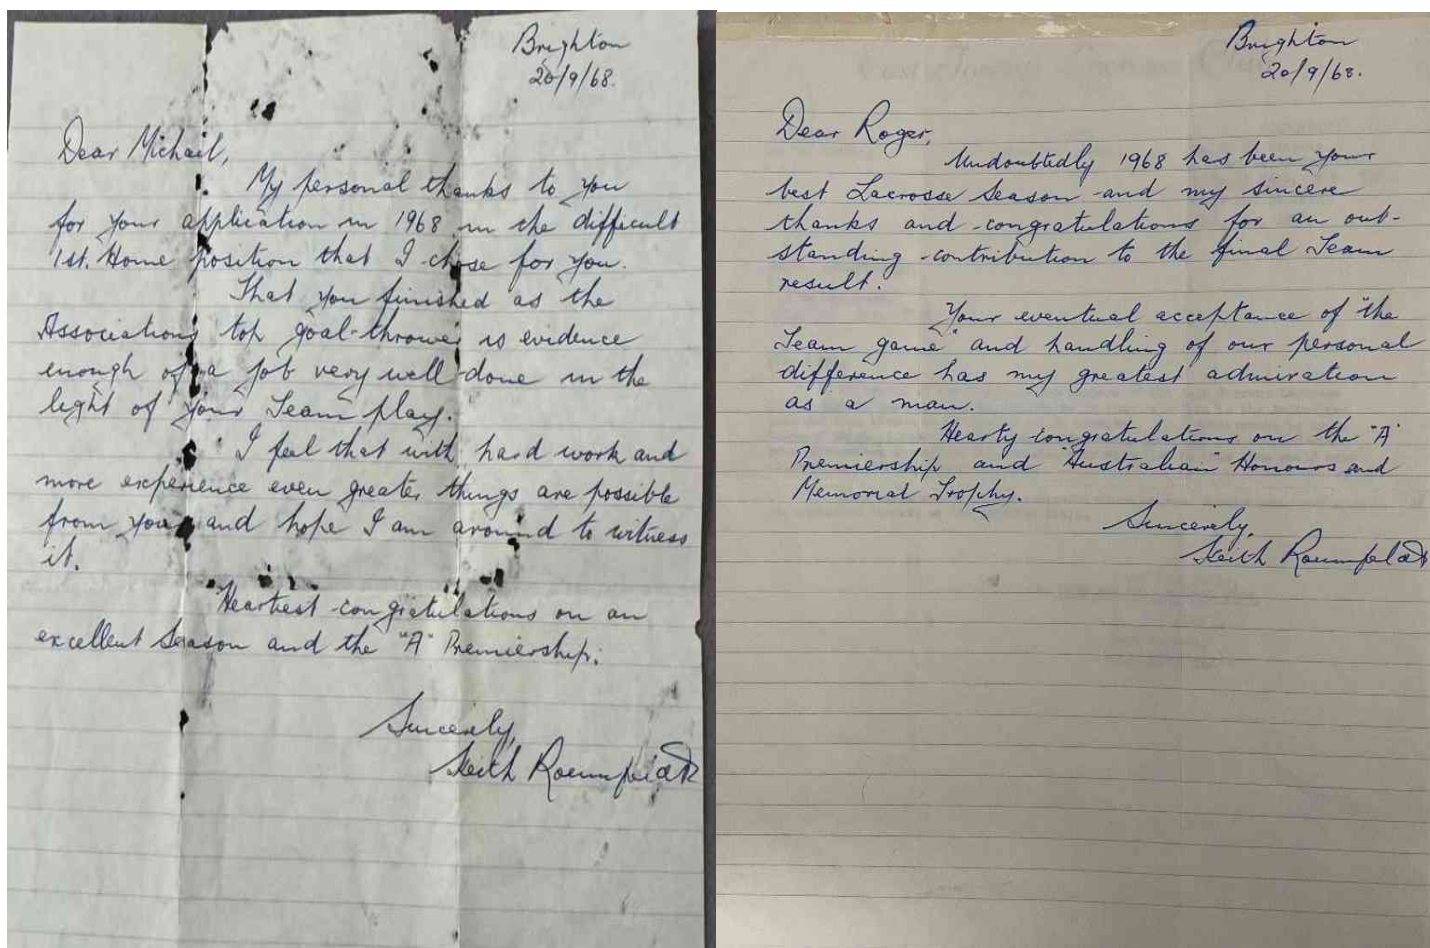 Brighton
20/9/68.
Dear Michael,
My personal thanks to you
for your application in 1968 in the difficult
1st. Home position that I chose for you.
That you finished as the
Associations top goal-thrower is evidence
enough of a job very well done in the
light of your Team play.
I feel that with hard work and
more experience even greater things are possible
from you and hope I am around to witness
it.
Heartiest congratulations on an
excellent Season and the "A" Premiership.
Sincerely,
Keith
Brighton
20/9/68.
Dear Roger,
Undoubtedly 1968 has been your
best Lacrosse Season and my sincere
thanks and congratulations for an out-
standing contribution to the final Team
result.
Your eventual acceptance of "the
Team game" and handling of our personal
difference has my greatest admiration
as a man.
Hearty congratulations on the "A"
Premiership and "Australian" Honours and
Memorial Trophy.
Sincerely,
Keith